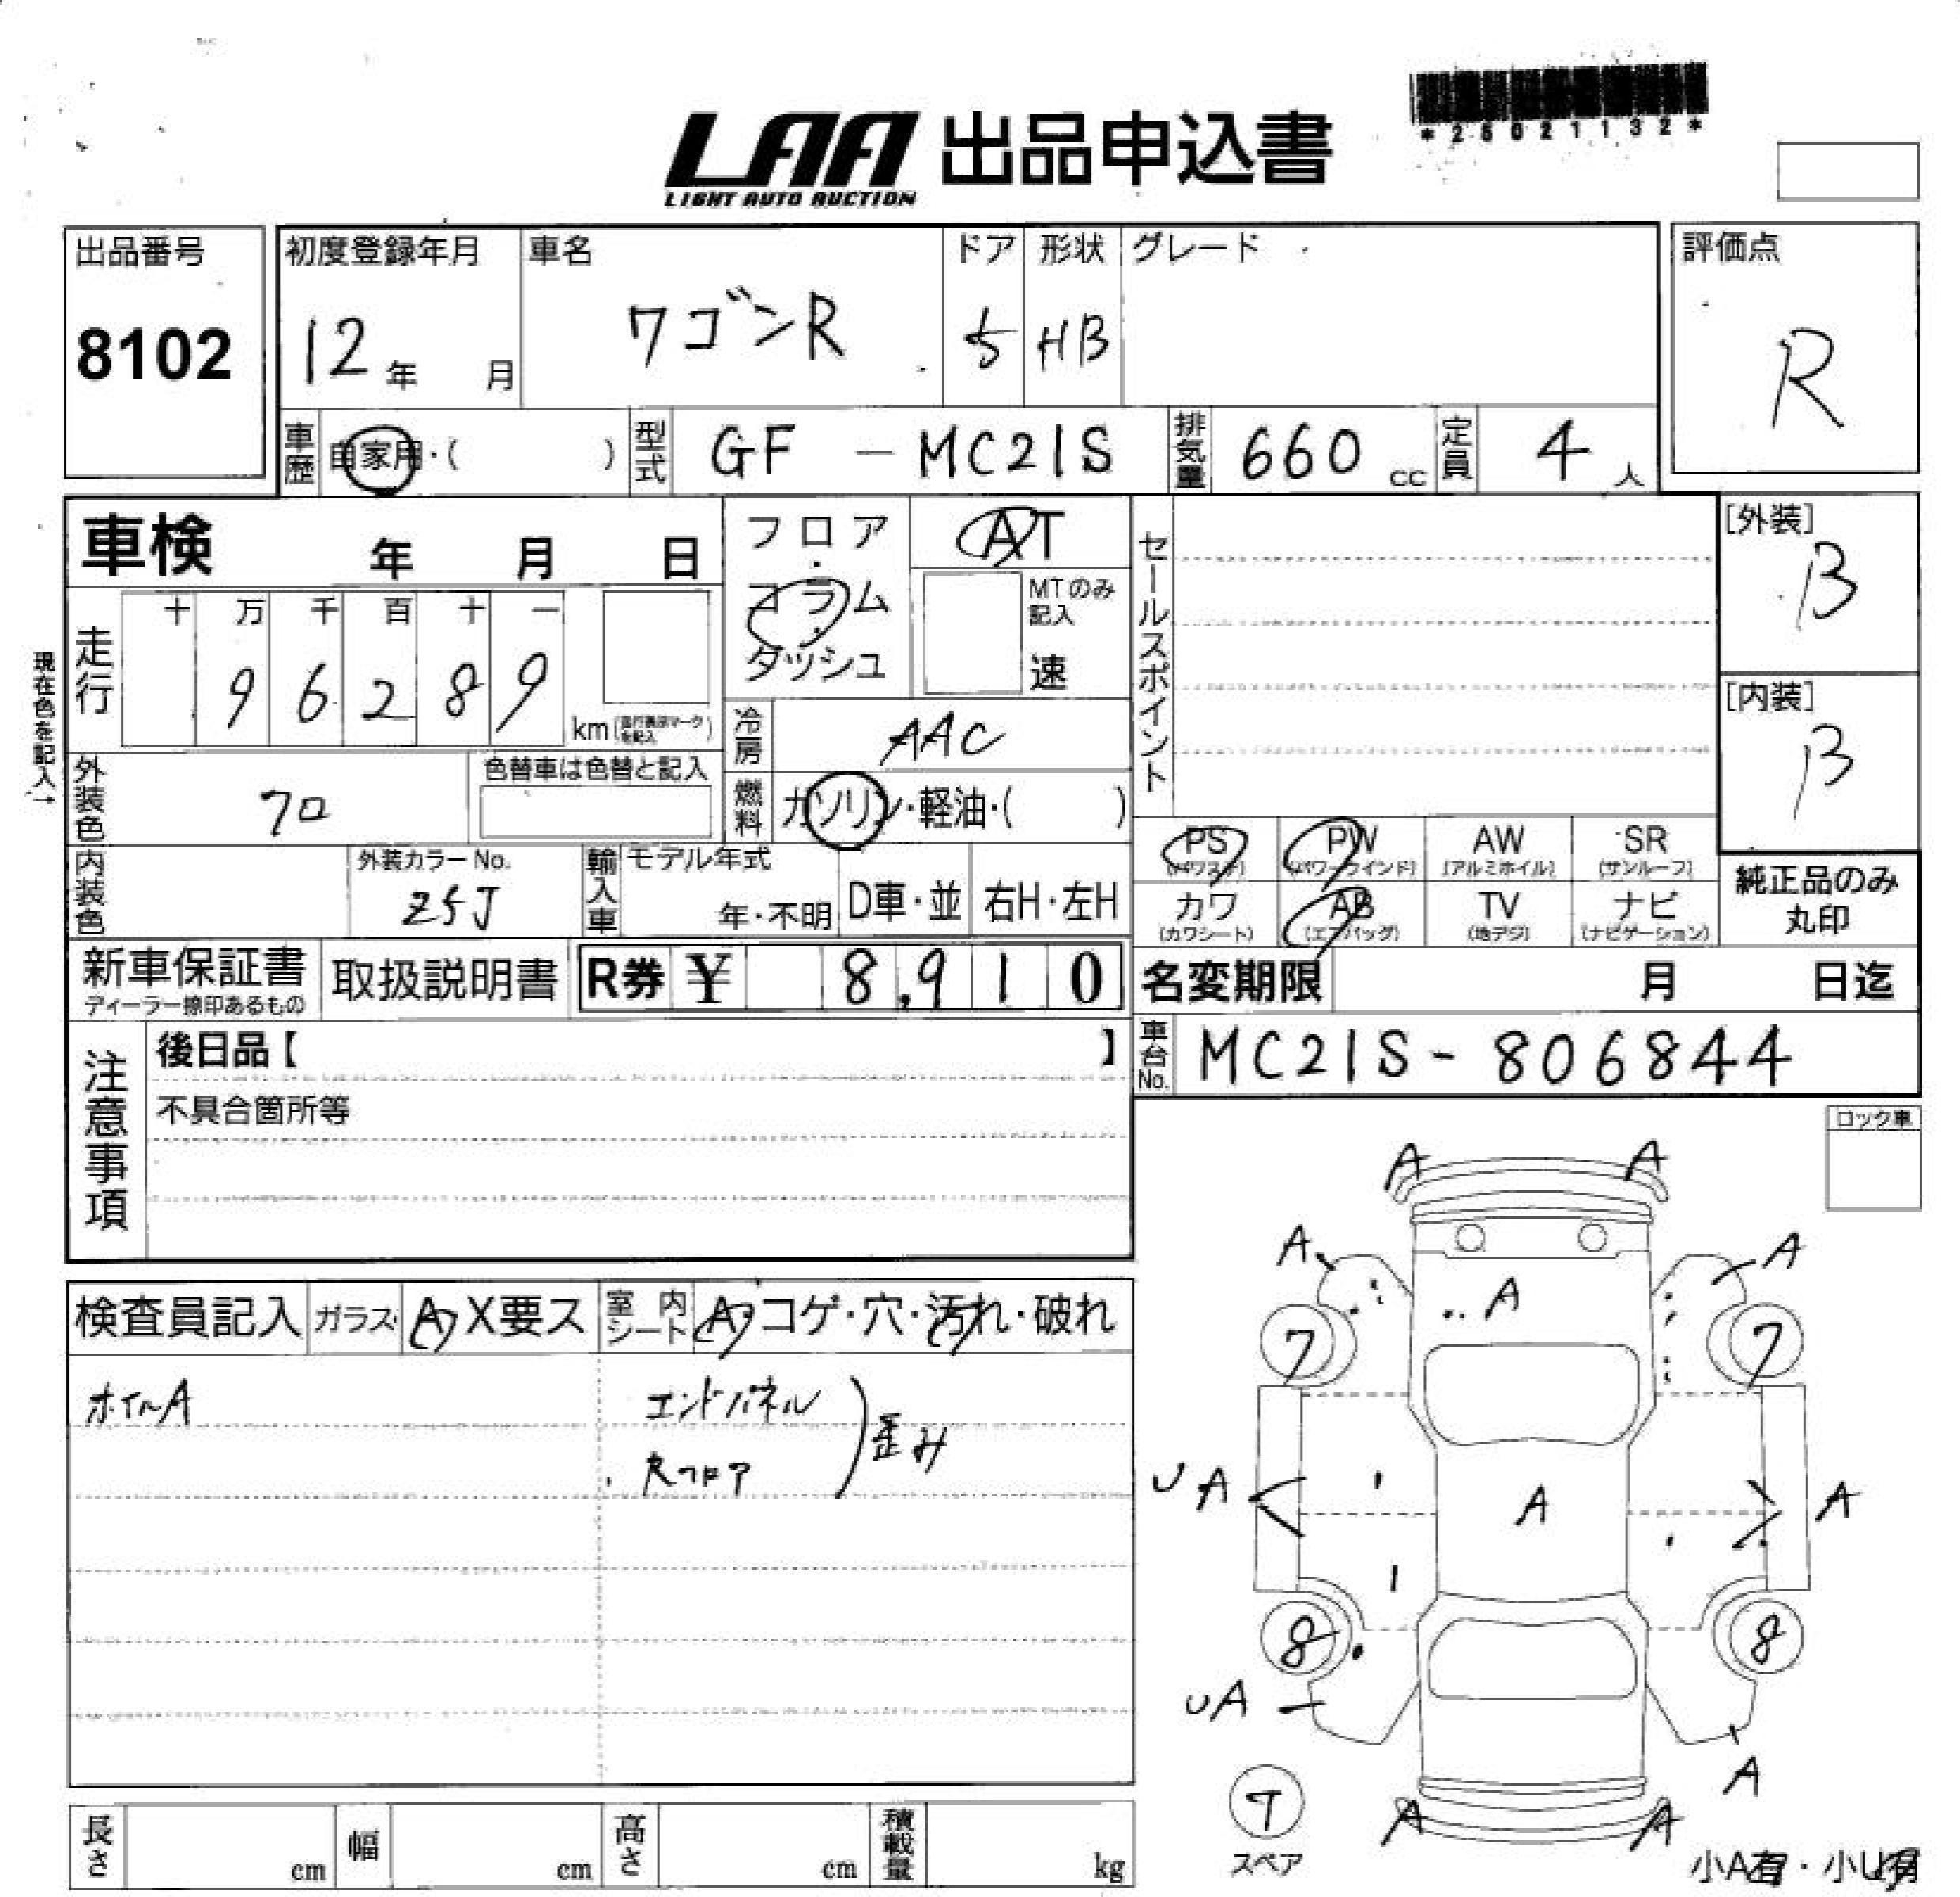 *25021132*
LAA 出品申込書
LIGHT AUTO AUCTION
出品番号
8102
初度登録年月
12年 月
車名
ワゴンR
ドア
5
形状
HB
グレード
評価点
R
車歴
自家用・( )
型式
GF - MC21S
排気量
660 cc
定員
4人
車検 年 月 日
フロア・コラム・ダッシュ
AT
MTのみ記入
速
セールスポイント
[外装]
B
[内装]
B
現在色を記入→
走行
十 万 千 百 十 一
9 6 2 8 9
km(走行表示マークを記入)
冷房
AAC
燃料
ガソリン・軽油・( )
外装色
クロ
色替車は色替と記入
内装色
外装カラーNo.
Z5J
輸入車
モデル年式
年・不明
D車・並
右H・左H
PS (パワステ)
PW (パワーウインド)
AW (アルミホイル)
SR (サンルーフ)
カワ (カワシート)
AB (エアバッグ)
TV (地デジ)
ナビ (ナビゲーション)
純正品のみ
丸印
新車保証書
ディーラー捺印あるもの
取扱説明書
R券 ¥ 8,910
名変期限 月 日迄
車台No.
MC21S - 806844
注意事項
後日品【 】
不具合箇所等
ロック車
検査員記入
ガラス
A X要ス
室内シート
A・コゲ・穴・汚れ・破れ
ホイルA
エンドパネル
フロア
歪み
A A
A A
A
7 7
UA A A
8 8
UA
A
T
スペア
A A
小A有・小U有
長さ cm
幅 cm
高さ cm
積載量 kg